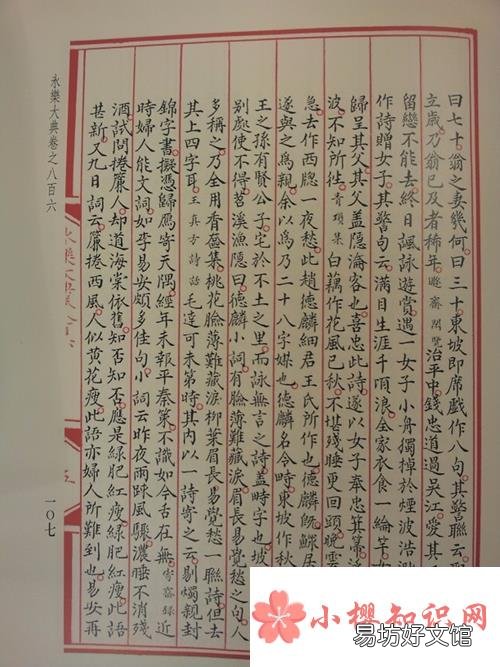 曰七十翁之妻幾何曰三十東坡即席戲作八句其警聯云
立歲乃翁已及者稀年遯齋閑覽治平中錢忠道過吳江愛其
留戀不能去終日諷詠遊賞遇一女子小舟獨棹於煙波浩
作詩贈女子其警句云滿目生涯千頃浪全家衣食一綸竿
歸呈其父其父盖隱淪客也喜忠此詩遂以女子奉忠箕箒
波不知所往青瑣集白藕作花風已秋不堪殘睡更回頭晚雲
急去作西牕一夜愁此趙德麟細君王氏所作也德麟鰥居
遂與之爲親余以爲乃二十八字媒也德麟名令畤東坡作秋
王之孫有賢公子宅於不土之里而詠無言之詩盖畤字也坡
别處使不得苕溪漁隱曰德麟小詞有臉薄難藏淚眉長易覺愁之句人
多稱之乃全用香奩集桃花臉薄難藏淚柳葉眉長易覺愁一聯詩但去
其上四字耳王直方詩話毛達可未第時其内以一詩寄之云剔燭親封
錦字書擬憑歸鴈寄天隅經年未報平秦策不識如今舌在無寄齋録近
時婦人能文詞如李易安頗多佳句小詞云昨夜雨踈風驟濃睡不消殘
酒試問捲簾人却道海棠依舊知否知否應是綠肥紅瘦綠肥紅瘦此語
甚新又九日詞云簾捲西風人似黄花瘦此語亦婦人所難到也易安再
永樂大典卷之八百六
一〇七
小櫻知识网
易坊好文馆